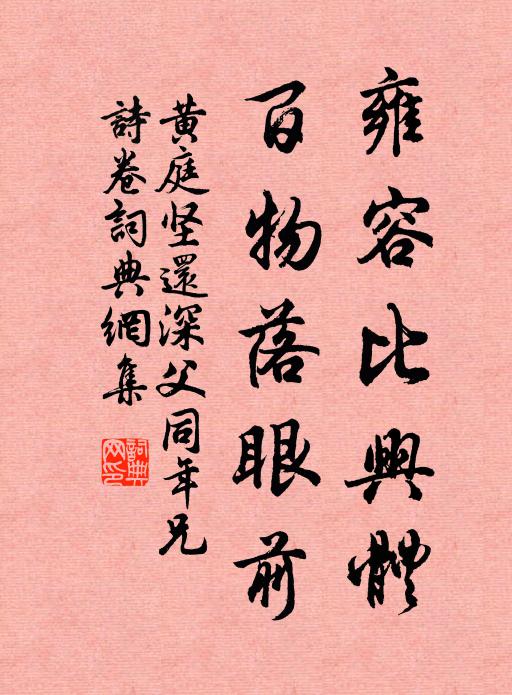 雍容比興體
百物落眼前
黃庭坚還深父同年兄
詩卷詞典網集
詞典網印